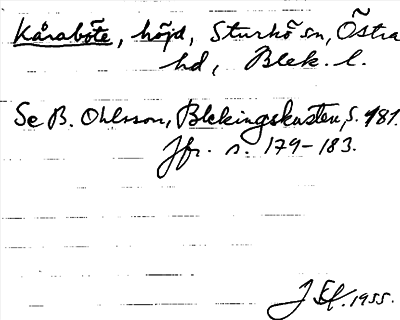 Kåraböte, höjd, Sturkö sn, Östra
hd, Blek. l.
Se B. Ohlsson, Blekingskusten, s. 181.
Jfr. s. 179-183.
1955.